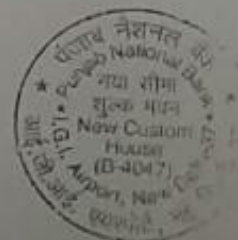 पंजाब नेशनल बैंक
Punjab National Bank
नया सीमा
शुल्क भवन
New Custom
House
(B-4047)
I.G.I. Airport, New